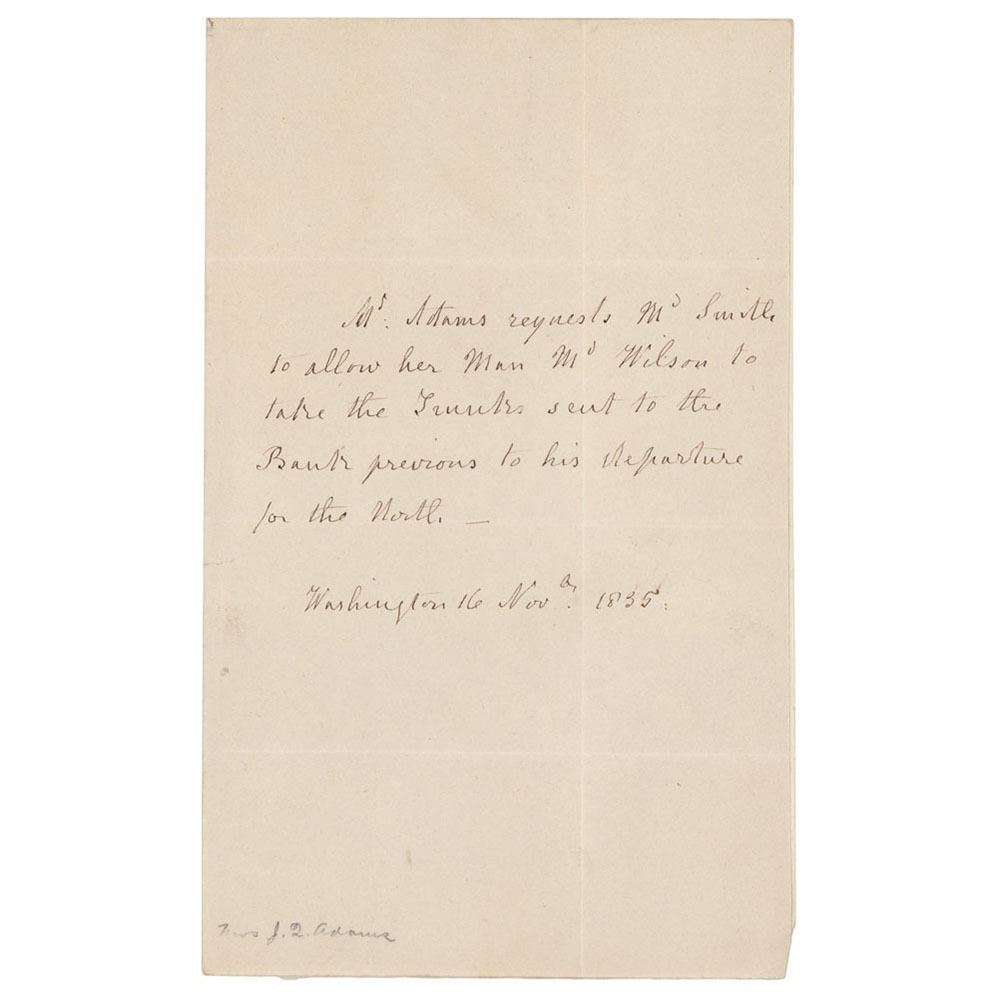 Mrs. Adams requests Mr Smith
to allow her Man Mr Wilson to
take the Trunks sent to the
Bank previous to his departure
for the North. —
Washington 16 Novr. 1835.
Mrs J. Q. Adams